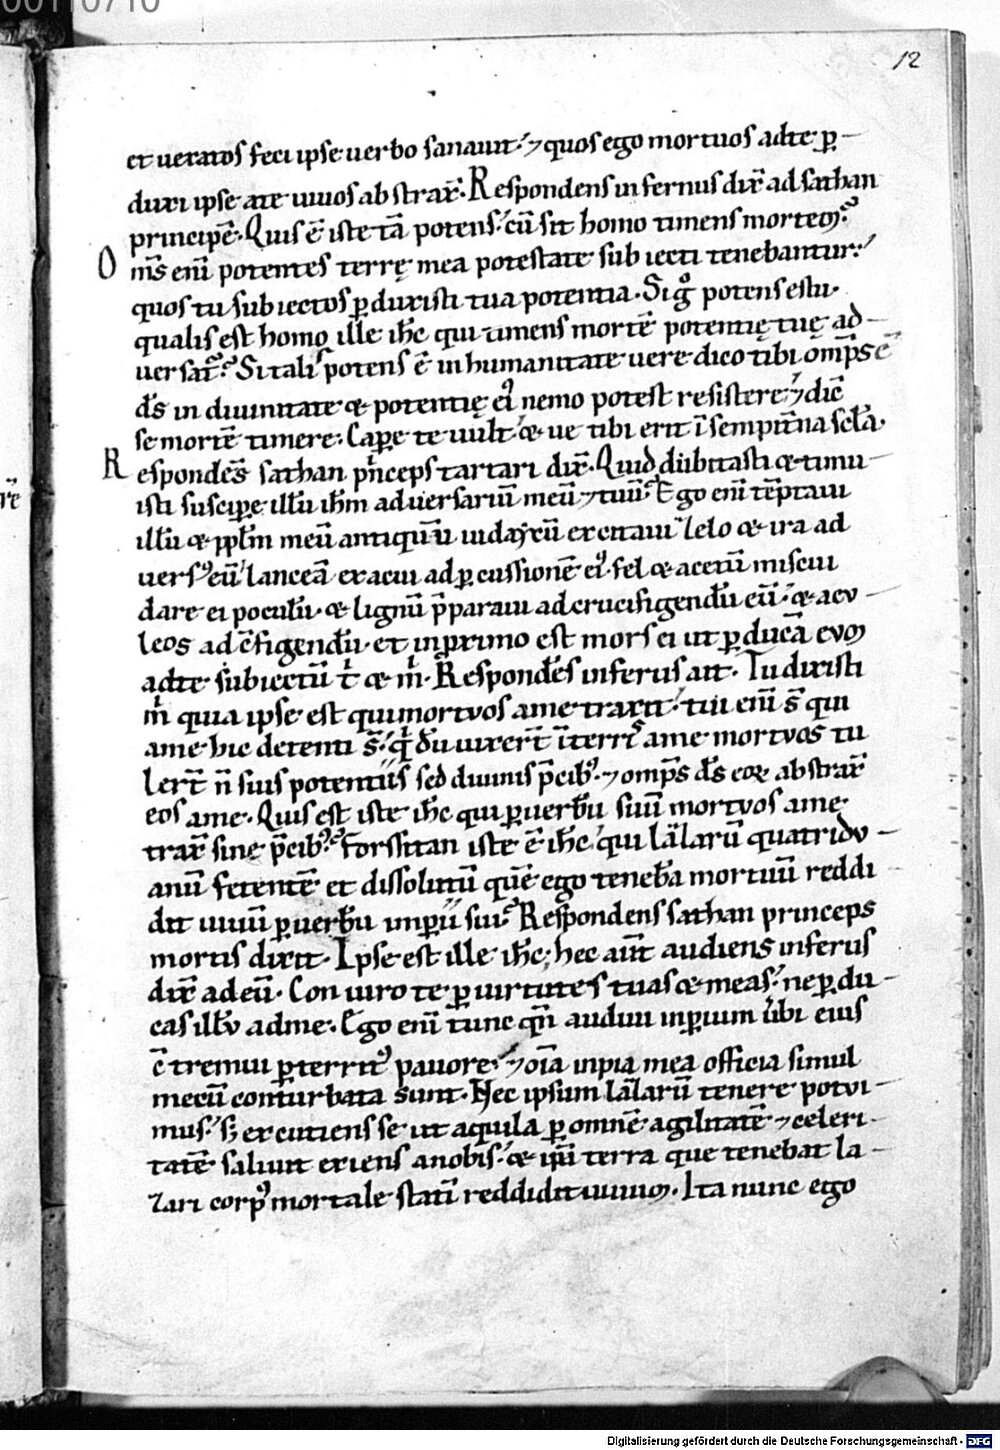 00110710
12
et uexatos feci ipse uerbo sanauit· ⁊ quos ego mortuos adte ꝑ
duxi ipse ate uiuos abstrax̄· Respondens infernus dix̄ ad sathan
principē· Quis ē iste tā potens· cū sit homo timens mortem?
Om̄s enī potentes terrę mea potestate subiecti tenebantur·
quos tu subiectos ꝑduxisti tua potentia· Sig̊ potens es tu·
qualis est homo ille ih̄c qui timens mortē potentię tuę ad
uersat̄? Si talis potens ē in humanitate uere dico tibi omp̄s ē
ds̄ in diuinitate & potentię ei᷒ nemo potest resistere ⁊ dic̄
se mortē timere· Capere te uult & ue tibi erit ī sempit̄na scl̄a·
Respondēs sathan pͥnceps tartari dix̄· Quid dubitasti & timu
isti suscipere illū ih̄m aduersariū meū ⁊ tuū? Ego enī tēptaui
illū & ppl̄m meū antiquū iudaycū excitaui zelo & ira ad
uers᷒ eū lanceā exacui ad ꝑcussionē ei᷒ fel & acetū miscui
dare ei poculū· & lignū p̄paraui ad crucifigendū eū· & acv
leos ad c̄figendū· et in proximo est mors ei ut ꝑducā evm
adte subiectū tͥ & mͥ· Respondēs inferus ait· Tu dixisti
mͥ quia ipse est qui mortvos ame traxit· tui enī s̄ qui
ame hic detenti s̄· qͥ dū uixer̄t ī terris ame mortvos tu
ler̄t n̄ suis potentiis sed diuinis p̄cib᷒· ⁊ omp̄s ds̄ eoꝝ abstrax̄
eos ame· Quis est iste ih̄c qui ꝑ uerbū suū mortvos ame
trax̄ sine p̄cib᷒? Forssitan iste ē ih̄c qui lazarū quatridv
anū fetentē et dissolutū quē ego teneba mortuū reddi
dit uiuū ꝑ uerbū imꝑii sui? Respondens sathan princeps
mortis dixit· Ipse est ille ih̄c· hec aūt audiens inferus
dix̄ ad eū· Coniuro te ꝑ uirtutes tuas & meas· ne ꝑdu
cas illv̄ adme· Ego enī tunc qn̄ audiui inꝑium ubi eius
c̄tremui ꝑterrit᷒ pauore· ⁊ oīa inpia mea officia simul
mecū conturbata sunt· Nec ipsum lazarū tenere potvi
mus· s; excutiens se ut aquila ꝑ omnē agilitatē ⁊ celeri
tatē saliuit exiens anobis· & ipsa terra que tenebat la
zari corp᷒ mortale statī reddidit uiuum· Ita nunc ego
Digitalisierung gefördert durch die Deutsche Forschungsgemeinschaft - DFG